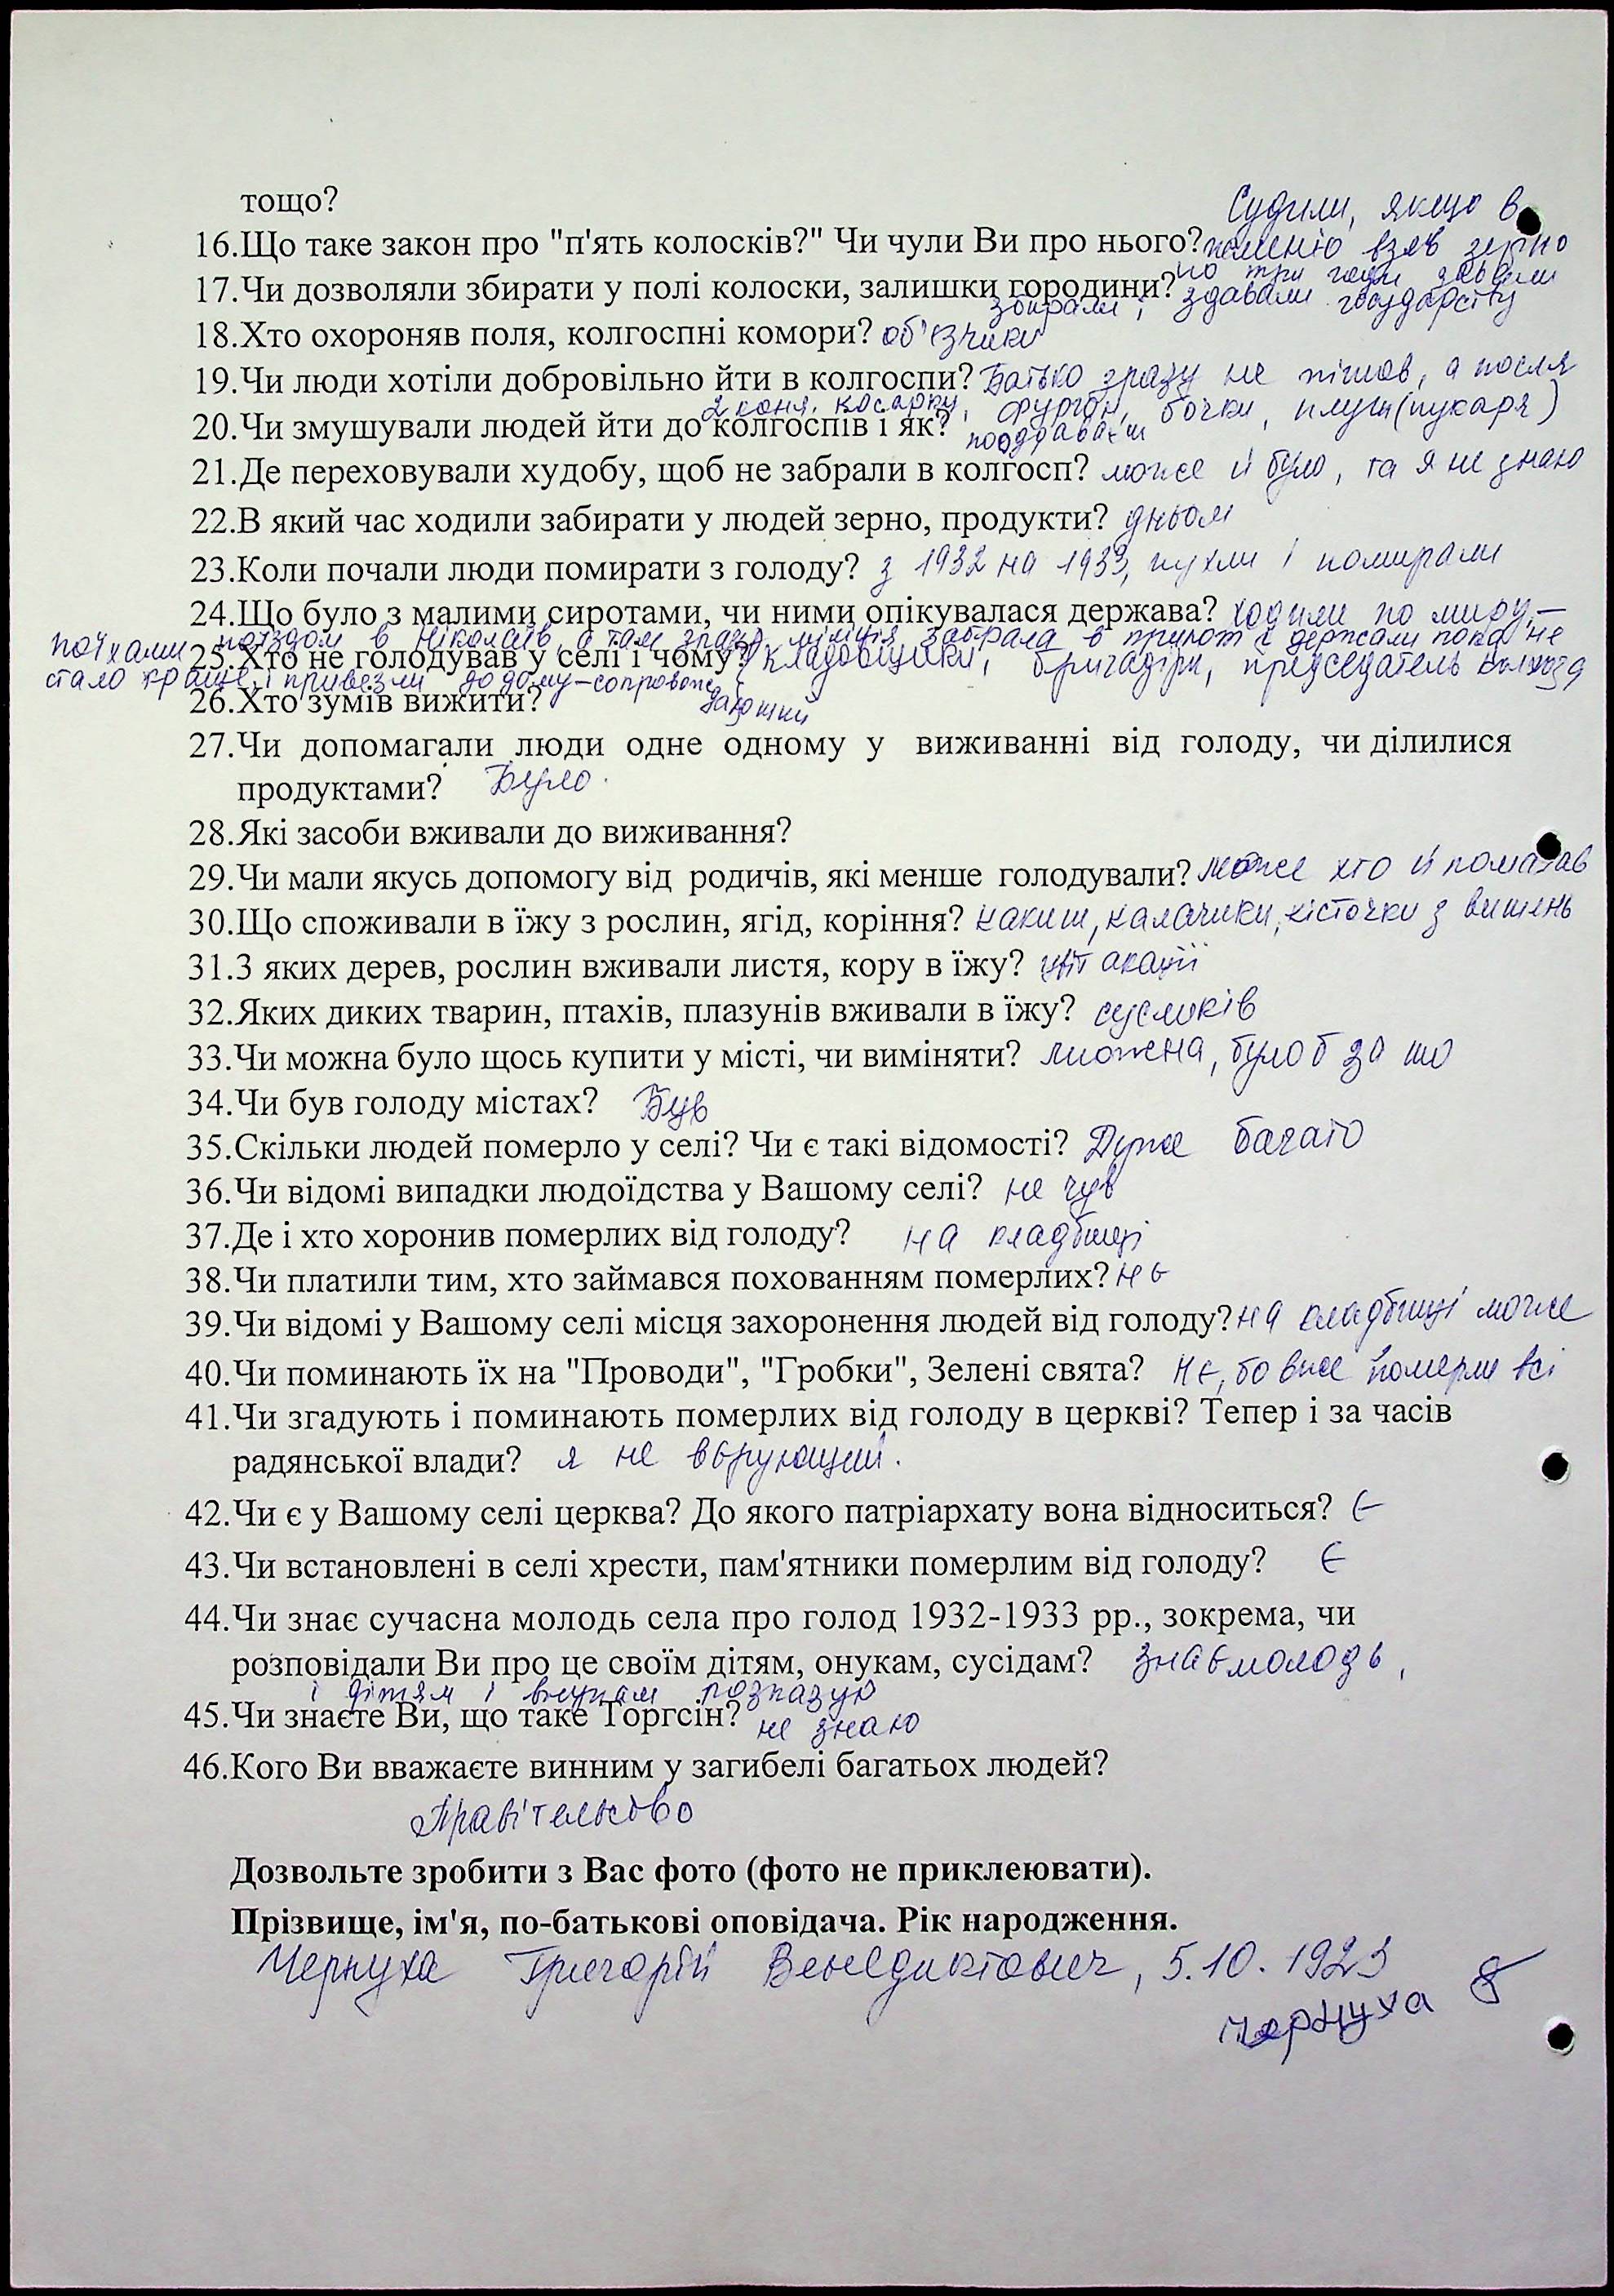 тощо?
Судили, якщо в
16.Що таке закон про "п'ять колосків?" Чи чули Ви про нього? жменю взяв зерно
по три годи давали
17.Чи дозволяли збирати у полі колоски, залишки городини? збирали, здавали государству
18.Хто охороняв поля, колгоспні комори? об'єзчики
19.Чи люди хотіли добровільно йти в колгоспи? Батько зразу не пішов, а посля
2 коня, косарку, фургон, бочки, плуги (пукаря)
20.Чи змушували людей йти до колгоспів і як? пооддавали
21.Де переховували худобу, щоб не забрали в колгосп? може й було, та я не знаю
22.В який час ходили забирати у людей зерно, продукти? дньом
23.Коли почали люди помирати з голоду? з 1932 на 1933, пухли і помирали
24.Що було з малими сиротами, чи ними опікувалася держава? ходили по миру,—
поїхали поїздом в Ніколаїв, а там зразу міліція забрала в приют і держали пока не
25.Хто не голодував у селі і чому? кладовщики, бригадіри, председатель колхоза
стало краще, і привезли додому – сопровождающий
26.Хто зумів вижити?
27.Чи допомагали люди одне одному у виживанні від голоду, чи ділилися
продуктами? Було.
28.Які засоби вживали до виживання?
29.Чи мали якусь допомогу від родичів, які менше голодували? може хто й помагав
30.Що споживали в їжу з рослин, ягід, коріння? калачики, кісточки з вишень
31.З яких дерев, рослин вживали листя, кору в їжу? цвіт акації
32.Яких диких тварин, птахів, плазунів вживали в їжу? сусликів
33.Чи можна було щось купити у місті, чи виміняти? можна, було б за шо
34.Чи був голоду містах? Був
35.Скільки людей померло у селі? Чи є такі відомості? Дуже багато
36.Чи відомі випадки людоїдства у Вашому селі? не чув
37.Де і хто хоронив померлих від голоду? на кладбищі
38.Чи платили тим, хто займався похованням померлих? нє
39.Чи відомі у Вашому селі місця захоронення людей від голоду? на кладбищі може
40.Чи поминають їх на "Проводи", "Гробки", Зелені свята? Нє, бо вже померли всі
41.Чи згадують і поминають померлих від голоду в церкві? Тепер і за часів
радянської влади? я не вєрующий.
42.Чи є у Вашому селі церква? До якого патріархату вона відноситься? Є
43.Чи встановлені в селі хрести, пам'ятники померлим від голоду? Є
44.Чи знає сучасна молодь села про голод 1932-1933 рр., зокрема, чи
розповідали Ви про це своїм дітям, онукам, сусідам? знає молодь,
і дітям і внукам розказую
45.Чи знаєте Ви, що таке Торгсін? не знаю
46.Кого Ви вважаєте винним у загибелі багатьох людей?
Правітельство
Дозвольте зробити з Вас фото (фото не приклеювати).
Прізвище, ім'я, по-батькові оповідача. Рік народження.
Чернуха Григорій Венедиктович, 5.10.1923
Чернуха